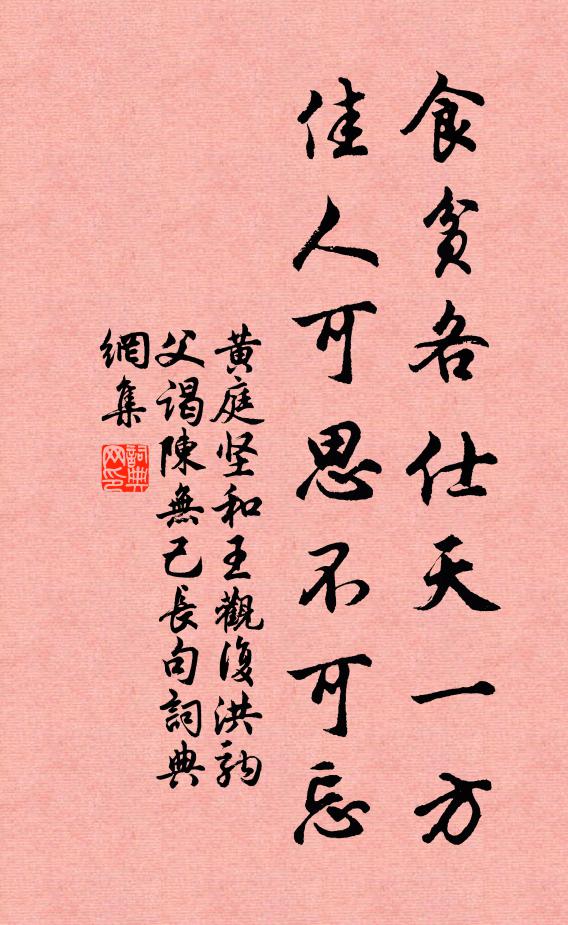 食貧各仕天一方
佳人可思不可忘
黃庭坚和王觀復洪駒
父谒陳無己長句詞典
網集
詞典
网印